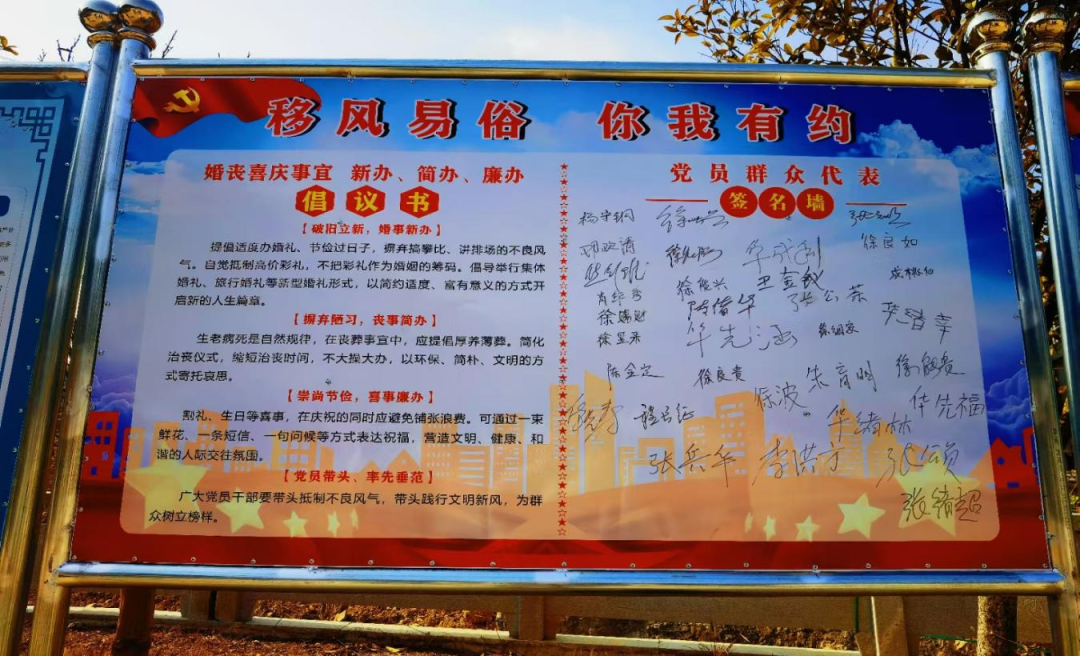 移风易俗 你我有约
婚丧喜庆事宜 新办、简办、廉办
倡议书
【破旧立新，婚事新办】
提倡适度办婚礼、节俭过日子，摒弃搞攀比、讲排场的不良风
气。自觉抵制高价彩礼，不把彩礼作为婚姻的筹码。倡导举行集体
婚礼、旅行婚礼等新型婚礼形式，以简约适度、富有意义的方式开
启新的人生篇章。
【摒弃陋习，丧事简办】
生老病死是自然规律，在丧葬事宜中，应提倡厚养薄葬。简化
治丧仪式，缩短治丧时间，不大挨大办，以环保、简朴、文明的方
式寄托哀思。
【崇尚节俭，喜事廉办】
割礼、生日等喜事，在庆祝的同时应避免铺张浪费。可通过一束
鲜花、一条短信、一句问候等方式表达祝福，营造文明、健康、和
谐的人际交往氛围。
【党员带头、率先垂范】
广大党员干部要带头抵制不良风气，带头践行文明新风，为群
众树立榜样。
党员群众代表
签名墙
徐良如
华先涵
陈金定 徐良贵
徐波 朱育明
华先福
华绪林
张兵华 李洪才 张颂
张绪超